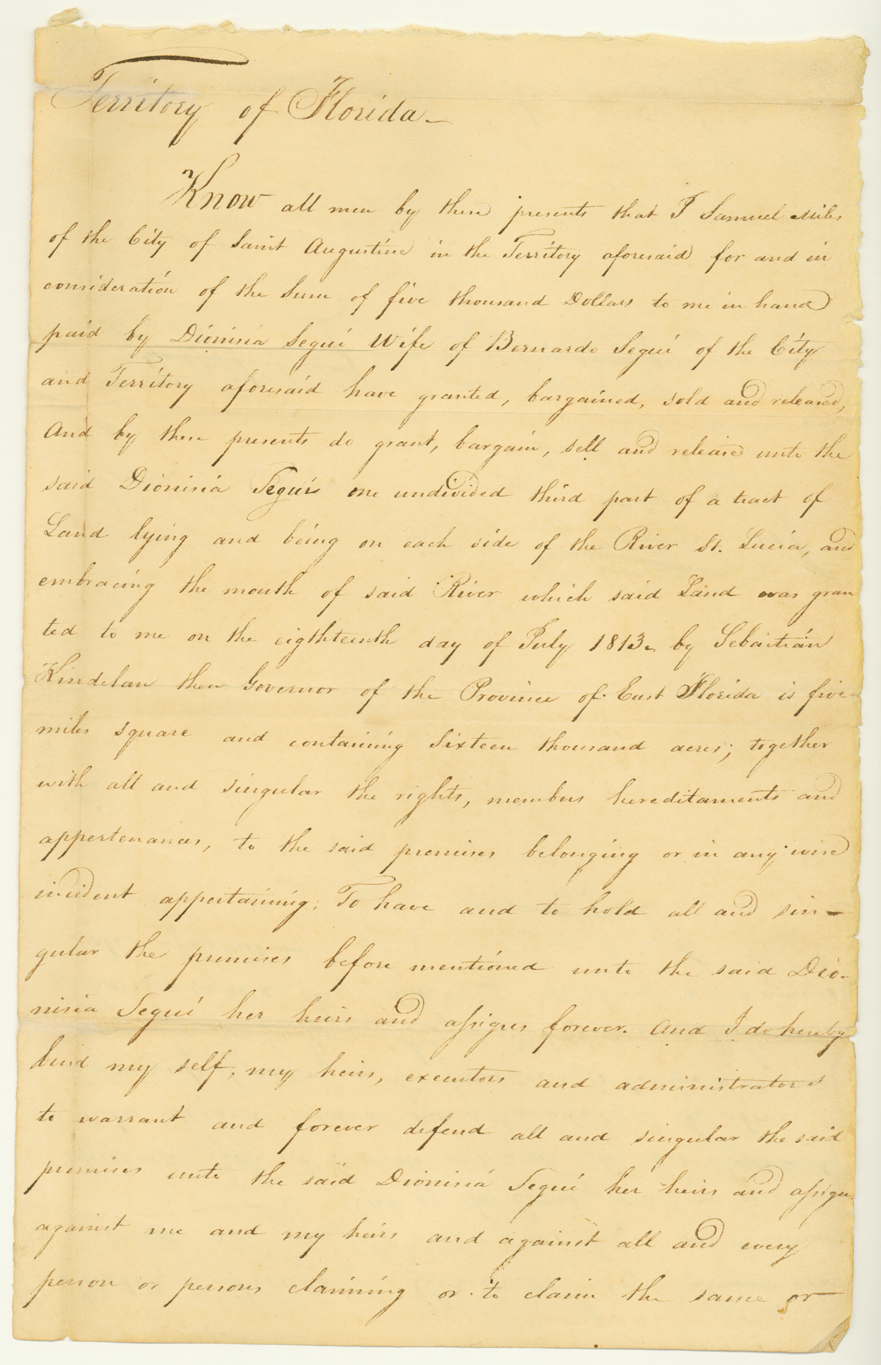 Territory of Florida
Know all men by these presents that I Samuel Miles
of the City of Saint Augustine in the Territory aforesaid for and in
consideration of the Sum of five thousand Dollars to me in hand
paid by Dionisia Segui Wife of Bernardo Segui of the City
and Territory aforesaid have granted, bargained, sold and released,
And by these presents do grant, bargain, sell and release unto the
said Dionisia Segui one undivided third part of a tract of
Land lying and being on each side of the River St. Lucia, and
embracing the mouth of said River which said Land was gran
ted to me on the eighteenth day of July 1813 by Sebastian
Kindelan then Governor of the Province of East Florida is five
miles square and containing Sixteen thousand acres; together
with all and singular the rights, members hereditaments and
appertenances, to the said premises belonging or in any wise
incident appertaining. To have and to hold all and sin-
gular the premises before mentioned unto the said Dio-
nisia Segui her heirs and assigns forever. And I do hereby
bind my self, my heirs, executors and administrators
to warrant and forever defend all and singular the said
premises unto the said Dionisia Segui her heirs and assigns
against me and my heirs and against all and every
person or persons claiming or to claim the same or